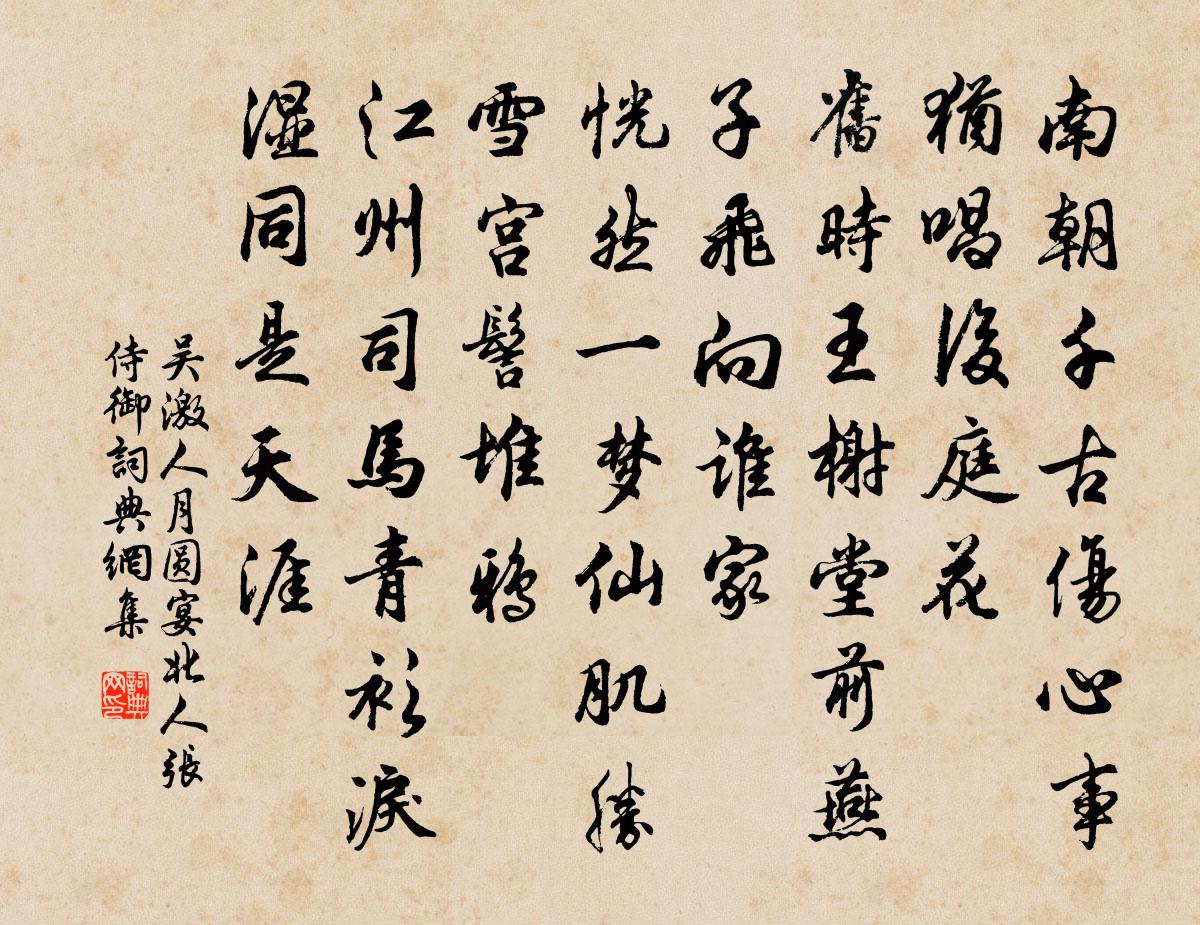 南朝千古傷心事
猶唱後庭花
舊時王榭堂前燕
子飛向誰家
恍然一梦仙肌勝
雪宫髻堆鴉
江州司馬青衫淚
湿同是天涯
吴激人月圆宴北人張
侍御詞典網集
詞典网印